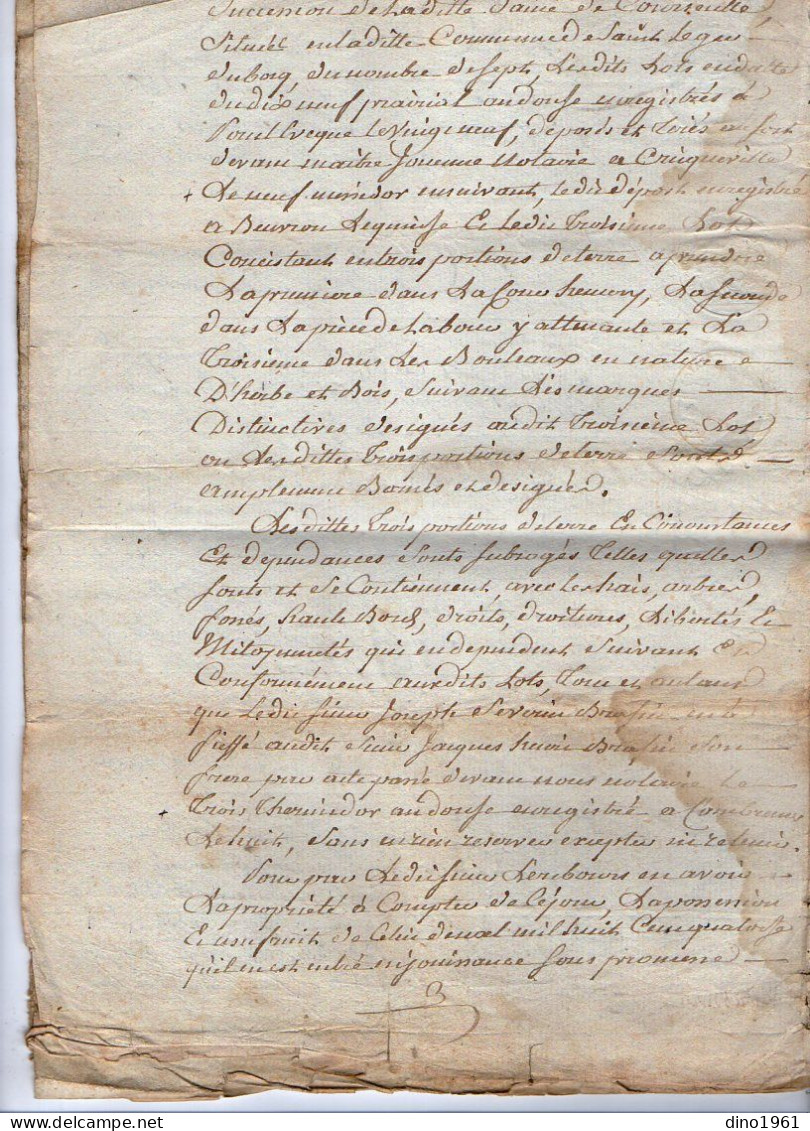 Succession de Laditte Dame de Courseulle
Situéé en laditte Commune de Saint Leger
dubosq, du nombre de sept, Lesdits Lots en datte
du dix neuf prairial an douse enregistrés à
Pont Leveque le Vingt neuf, deposés et
devant maitre Jouenne Notaire a Cricqueville
+ Le neuf messidor ensuivant, ledit dépost enregistré
a Beuvron Lequinse Et Ledit Troisieme Lot
Concistant en trois portions deterre aprendre
Lapremiere dans La Cour hemery, Laseconde
dans Lapiéce de Labour y attenante et La
Troisieme dans Les Bouleaux en nature
D'hérbe et Bois, Suivant Les marques
Distinctives desigués audit Troisiéme Lot
ou Lesdittes Trois portions deterre Sont
amplement Bornés et desigués.
Lesdittes Trois portions deterre En Circonstances
Et dependances Sonts Subrogés Telles quelles
sonts et Se Contiennent, avec les hais, arbres,
fossés, haute Bord, droits, droitures, Libertés Et
Mitoyennetés qui en dependent Suivant Et
Conformément auxdits Lots, Tout et autant
que Ledit Sieur Joseph Severin en à
fieffé audit Sieur Jacques henri Son
frere par acte passé devant nous notaire Le
+ Trois Thermidor an douse enregistré a Combremer
Lehuit, Sans en rien reserver excepter ni retenir.
Pour par Ledit Sieur en avoir
Lapropriété à Compter de Cejour, Lapossession
Et usufruit de Celui denoel mil huit Cent quatorse
qu'il en est entré en jouissance Sous promesse